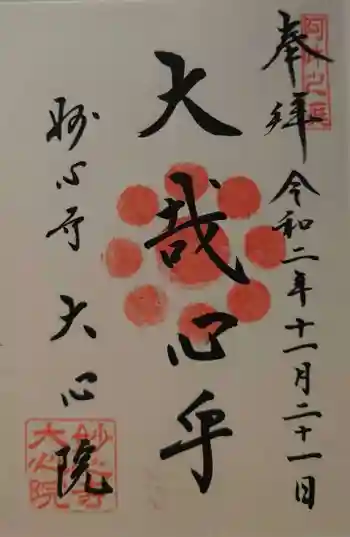 奉拝
令和二年十一月二十一日
大哉心乎
妙心寺 大心院
妙心寺
大心院